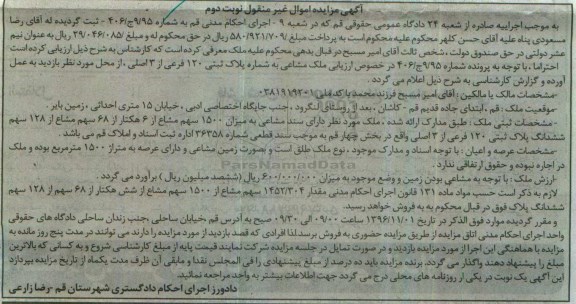 آگهی مزایده اموال غیر منقول نوبت دوم
به موجب اجراییه صادره از شعبه ۲۴ دادگاه عمومی حقوقی قم که در شعبه ۹ - اجرای احکام مدنی قم به شماره ۹/۹۵ج/۴۰۶ - ثبت گردیده له آقای رضا
مسعودی پناه علیه آقای حسن کلهر محکوم علیه محکوم است به پرداخت مبلغ ۵۸۰/۹۲۱/۷۰۹ ریال در حق محکوم له و مبلغ ۲۹/۰۴۶/۰۸۵ ریال به عنوان نیم
عشر دولتی در حق صندوق دولت ,شخص ثالث آقای امیر مسیح در قبال بدهی محکوم علیه ملک معرفی کرده است که کارشناس به شرح ذیل ارزیابی کرده است
احتراما ، با توجه به پرونده شماره ۹/۹۵ج/۴۰۶ در خصوص ارزیابی ملک مشاعی به شماره پلاک ثبتی ۱۲۰ فرعی از ۳ اصلی ، از محل مورد نظر بازدید به عمل
آورده و گزارش کارشناسی به شرح ذیل اعلام می گردد .
-مشخصات مالک یا مالکین : آقای امیر مسیح فرزند محمد با کدملی ۰۳۸۱۹۱۹۲۰۱
-موقعیت ملک : قم ,ابتدای جاده قدیم قم - کاشان , بعد از روستای لنگرود ,جنب جایگاه اختصاصی ادبی ، خیابان ۱۵ متری احداثی ،زمین بایر .
-مشخصات ثبتی ملک : طبق مدارک ارائه شده ، ملک مورد نظر دارای سند مشاعی به میزان ۱۵۰۰ سهم مشاع از ۶ هکتار از ۶۸ سهم مشاع از ۱۲۸ سهم
ششدانگ پلاک ثبتی ۱۲۰ فرعی از ۳ اصلی واقع در بخش چهار قم به موجب سند قطعی شماره ۳۶۳۵۸ اداره ثبت اسناد و املاک قم می باشد .
-مشخصات عرصه و اعیان : با توجه اسناد و مدارک موجود ، نوع ملک طلق است و بصورت زمین مشاعی و دارای عرصه به متراژ ۱۵۰۰ مترمربع بوده و ملک
در اجاره نبوده و حقوق ارتفاقی ندارد .
-ارزش ملک : با توجه به مشاعی بودن زمین و وضع موجود به میزان ۶۰۰/۰۰۰/۰۰۰ ریال (ششصد میلیون ریال ) برآورد می گردد .
لازم به ذکر است حسب مواد ماده ۱۳۱ قانون اجرای احکام مدنی مقدار ۱۴۵۲/۳۰۴ سهم مشاع از ۱۵۰۰ سهم مشاع از شش هکتار از ۶۸ سهم از ۱۲۸ سهم
ششدانگ پلاک فوق در قبال محکوم به به فروش خواهد رسید.
و مقرر گردیده موارد فوق الذکر در تاریخ ۱۳۹۶/۱۱/۰۱ ساعت ۰۹/۰۰ الی ۰۹/۳۰ صبح به آدرس قم ,خیابان ساحلی ,جنب زندان ساحلی دادگاه های حقوقی
واحد اجرای احکام مدنی اتاق مزایده از طریق مزایده حضوری به فروش برسد.لذا افرادی که قصد بازدید از مورد مزایده را دارند می توانند در مدت پنج روز مانده به
مزایده با هماهنگی این اجرا از مورد مزایده بازدید و در صورت تمایل در جلسه مزایده شرکت نمایند قیمت پایه از مبلغ کارشناسی شروع و به کسانی که بالاترین
مبلغ را پیشنهاد دهند واگذار می گردد. برنده مزایده باید ده درصد از مبلغ پیشنهادی را فی المجلس نقدا و مابقی آن ظرف مدت یکماه از تاریخ مزایده بپردازد
این آگهی یک نوبت در یکی از روزنامه های محلی درج می گردد جهت اطلاعات بیشتر به واحد مراجعه نمائید.
دادورز اجرای احکام دادگستری شهرستان قم -رضا زارعی